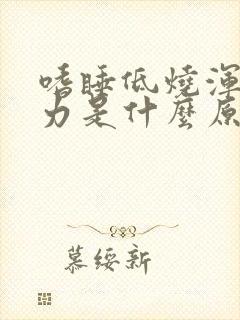 嗜睡低燒渾
力是什麼原
慕綏新